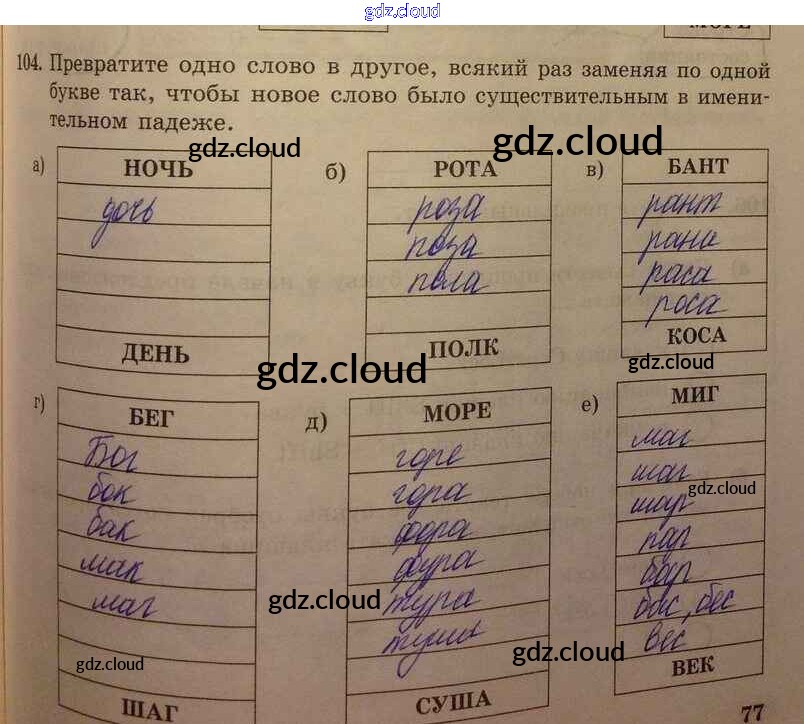 gdz.cloud
МОРЕ
104. Превратите одно слово в другое, всякий раз заменяя по одной
букве так, чтобы новое слово было существительным в имени-
тельном падеже.
gdz.cloud
gdz.cloud
а)
НОЧЬ
дочь
ДЕНЬ
б)
РОТА
роза
поза
пола
ПОЛК
в)
БАНТ
рант
рана
раса
роса
КОСА
gdz.cloud
gdz.cloud
г)
БЕГ
Бог
бок
бак
мак
маг
ШАГ
д)
МОРЕ
горе
гора
фора
фура
тура
туша
СУША
е)
МИГ
маг
шаг
шар
пар
бар
бас, бес
вес
ВЕК
gdz.cloud
gdz.cloud
gdz.cloud
gdz.cloud
77